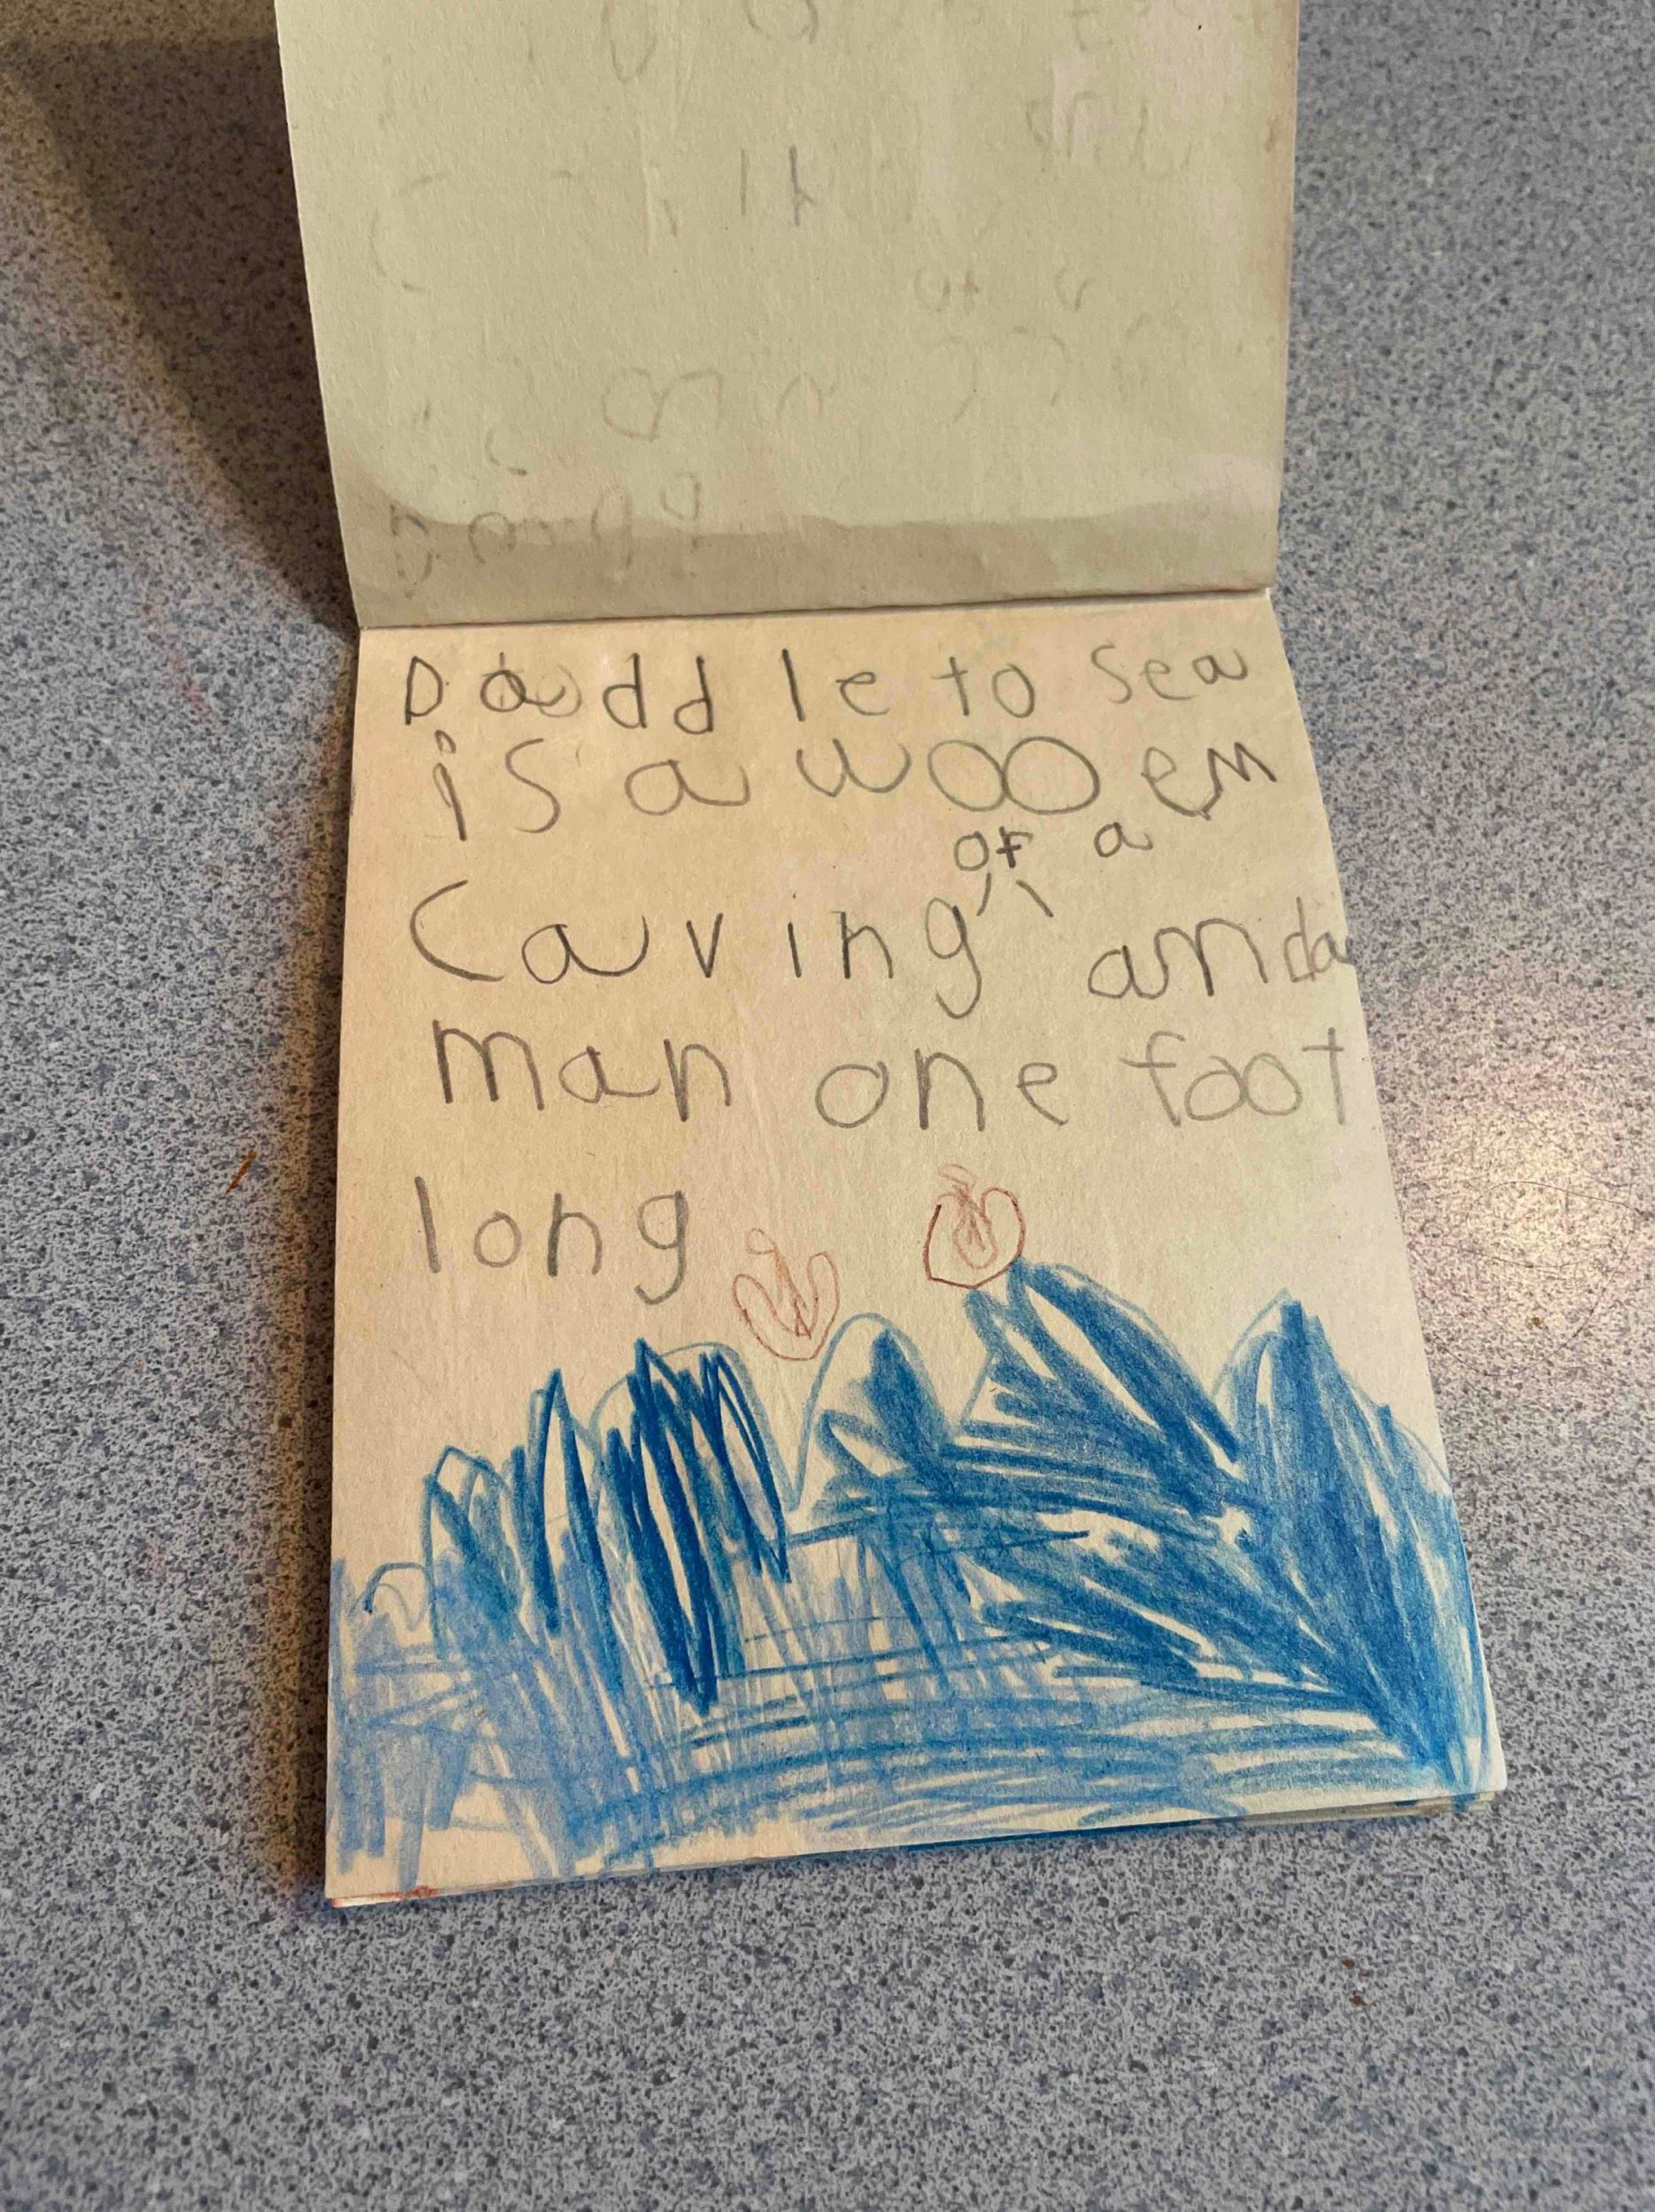 Daddle to Sea
is a wooen
of a
Caving anda
man one foot
long